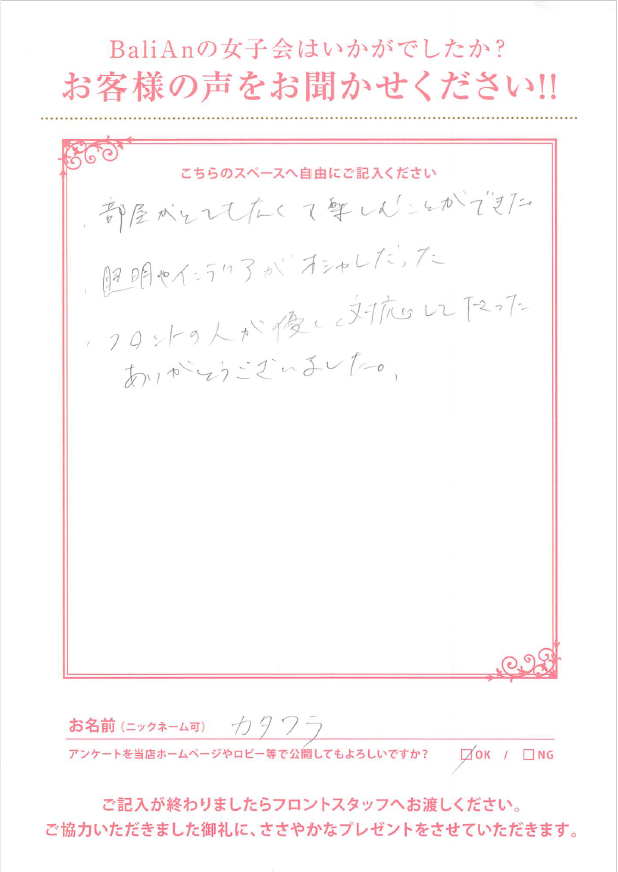 BaliAnの女子会はいかがでしたか？
お客様の声をお聞かせください!!
こちらのスペースへ自由にご記入ください
・部屋がとても広くて楽しむことができた
・照明やインテリアがオシャレだった
・フロントの人が優しく対応して下さった
ありがとうございました。
お名前（ニックネーム可） カタワラ
アンケートを当店ホームページやロビー等で公開してもよろしいですか？ ☑OK / □NG
ご記入が終わりましたらフロントスタッフへお渡しください。
ご協力いただきました御礼に、ささやかなプレゼントをさせていただきます。